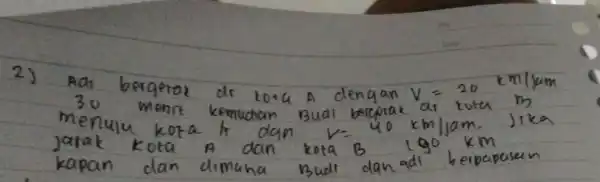 2) Adi bergerak di kota A dengan V = 20 km/jam
30 menit kemudian Budi bergerak di kota B
menuju kota A dgn V = 40 km/jam. Jika
jarak kota A dan kota B 190 km
kapan dan dimana Budi dan adi berpapasan